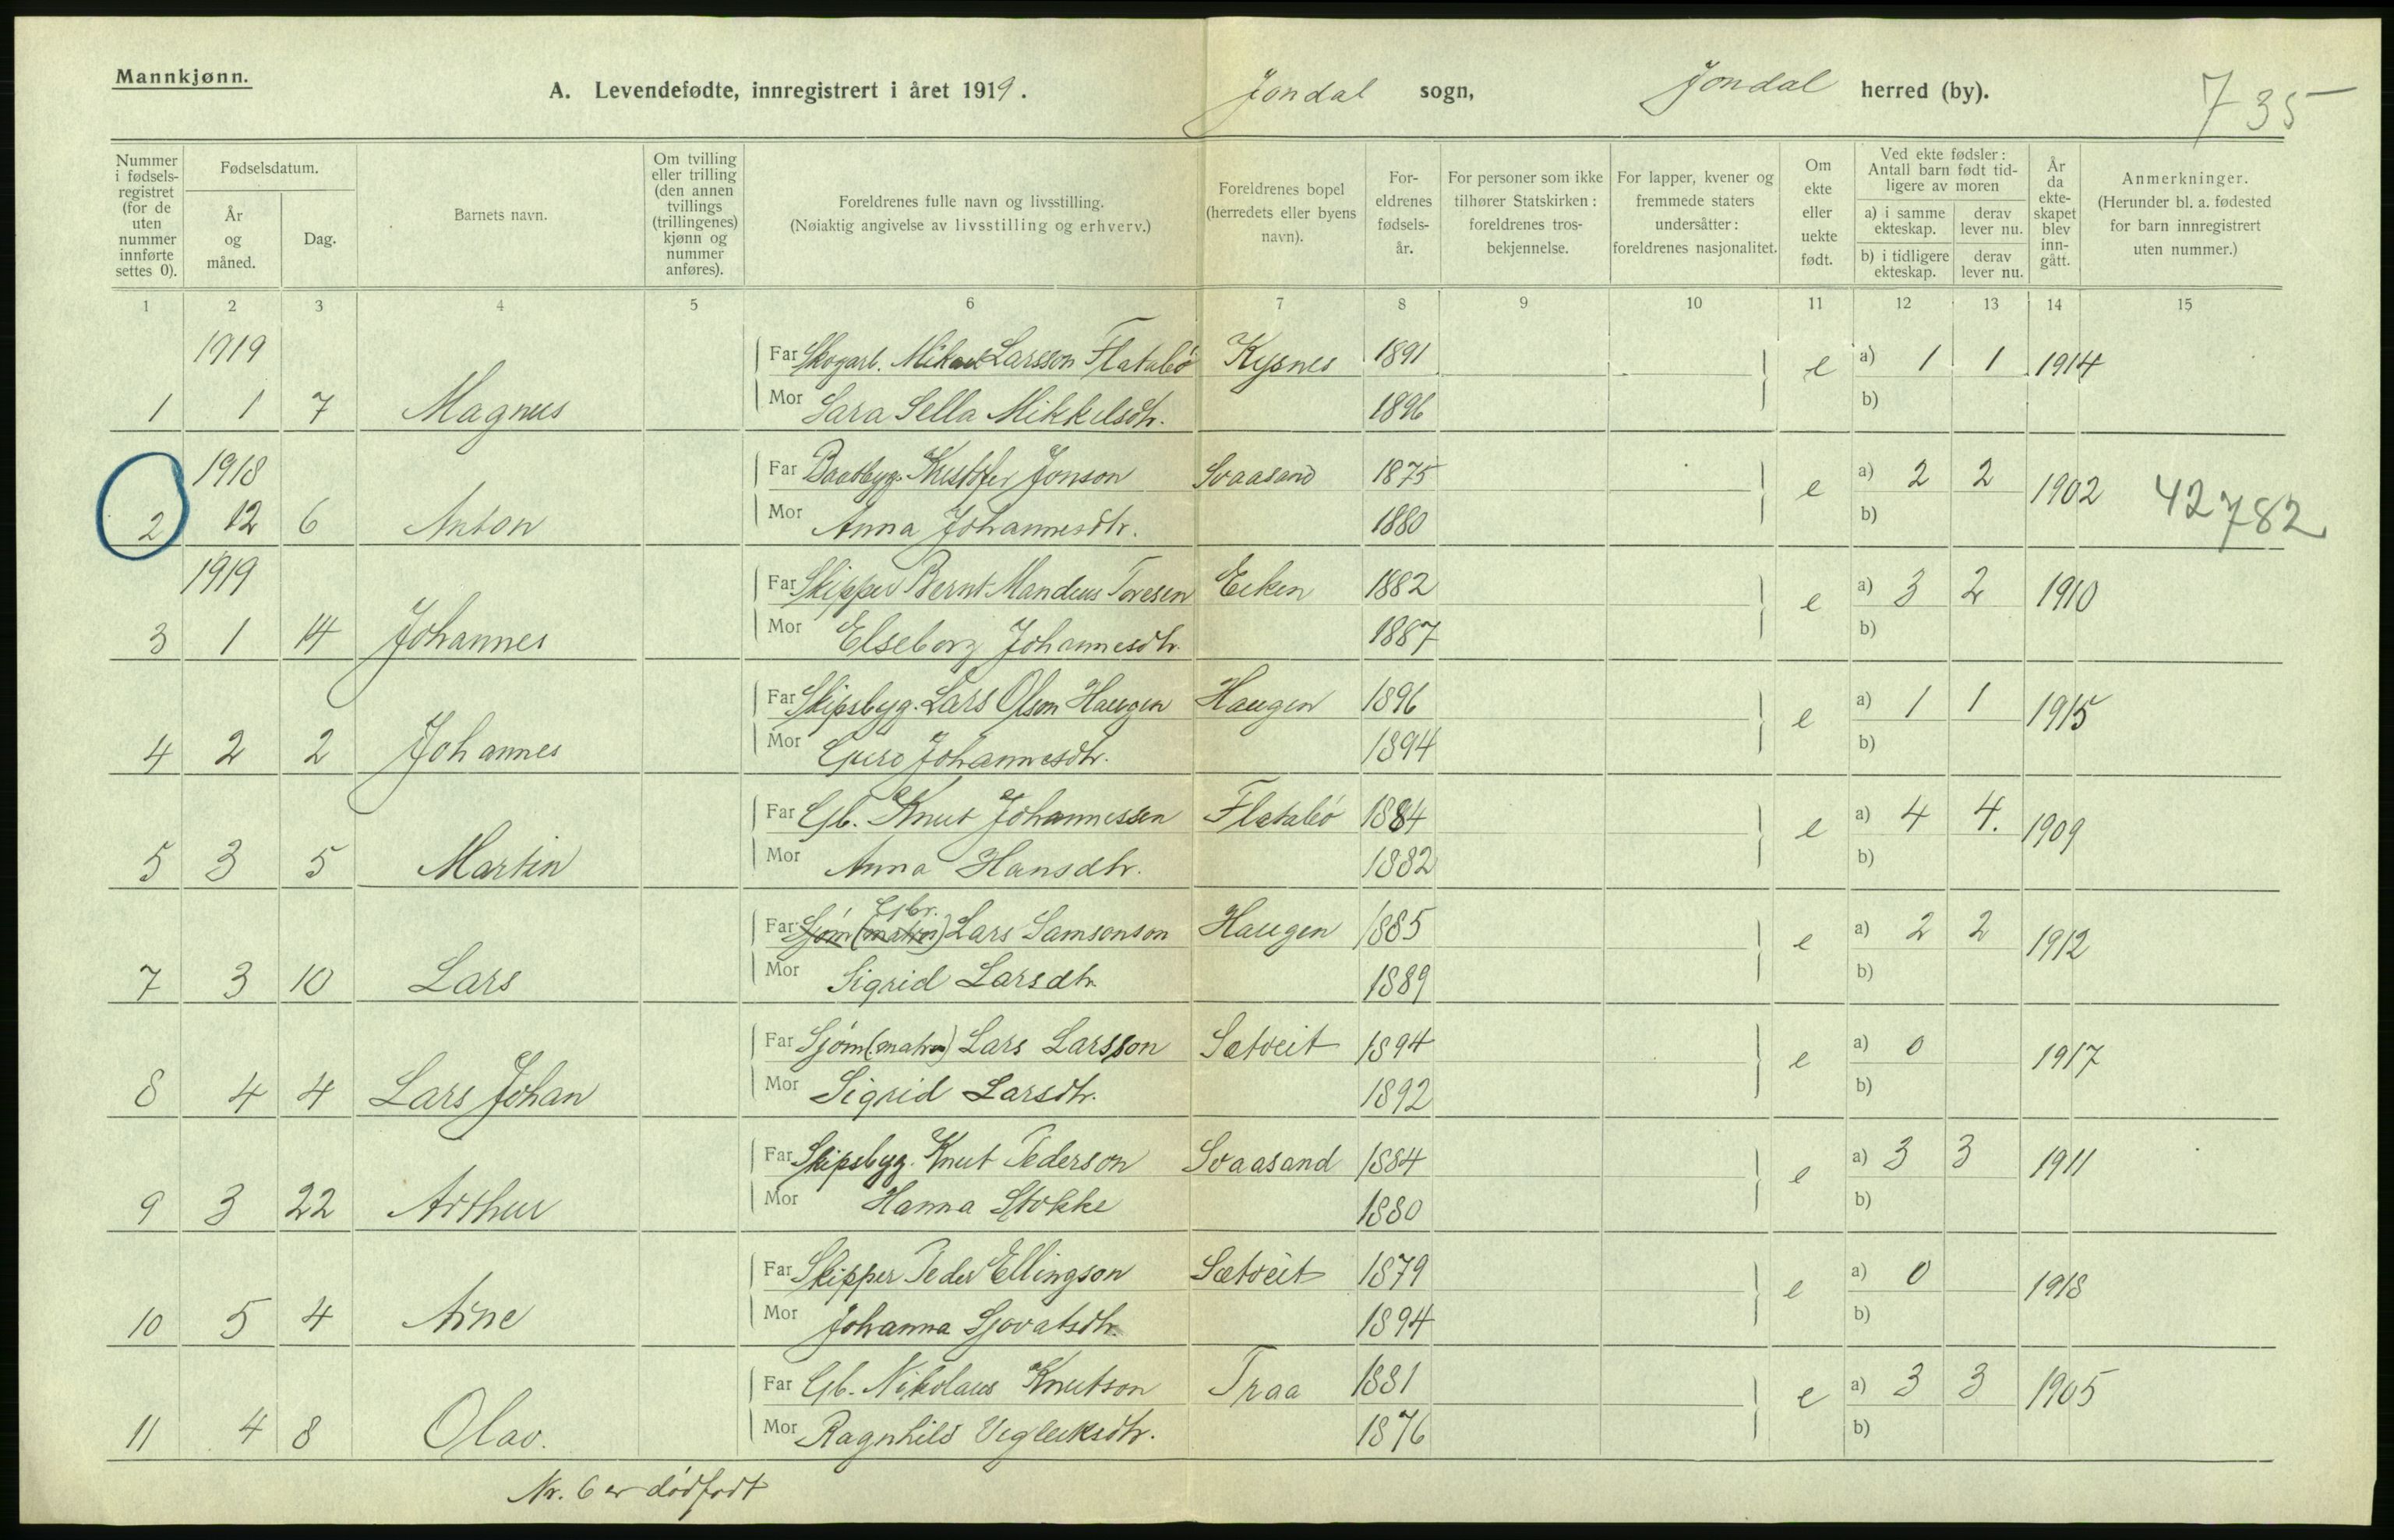 Mannkjønn.
A. Levendefødte, innregistrert i året 1919. Jondal sogn, Jondal herred (by). 735
Nummer i fødselsregistret (for de uten nummer innførte settes 0).
Fødselsdatum.
År og måned.
Dag.
Barnets navn.
Om tvilling eller trilling (den annen tvillings (trillingenes) kjønn og nummer anføres).
Foreldrenes fulle navn og livsstilling.
(Nøiaktig angivelse av livsstilling og erhverv.)
Foreldrenes bopel (herredets eller byens navn).
Foreldrenes fødselsår.
For personer som ikke tilhører Statskirken: foreldrenes trosbekjennelse.
For lapper, kvener og fremmede staters undersåtter: foreldrenes nasjonalitet.
Om ekte eller uekte født.
Ved ekte fødsler: Antall barn født tidligere av moren
a) i samme ekteskap. derav lever nu.
b) i tidligere ekteskap. derav lever nu.
År da ekteskapet blev inngått.
Anmerkninger.
(Herunder bl. a. fødested for barn innregistrert uten nummer.)
1 2 3 4 5 6 7 8 9 10 11 12 13 14 15
1919 Far Skogarb. Mikael Larsson Flatabö Kysnes 1891 e a) 1 1 1914
1 1 7 Magnus Mor Sara Sella Mikkelsdtr. 1896 b)
1918 Far Baatbyg. Kristofer Jonson Svaasand 1875 e a) 2 2 1902 42782
2 12 6 Anton Mor Anna Johannesdtr. 1880 b)
1919 Far Skipper Bernt Mandeus Toresen Eiken 1882 e a) 3 2 1910
3 1 14 Johannes Mor Elseborg Johannesdtr. 1887 b)
Far Skipsbyg. Lars Olson Haugen Haugen 1896 e a) 1 1 1915
4 2 2 Johannes Mor Guro Johannesdtr. 1894 b)
Far Gb. Knut Johannessen Flatabö 1884 e a) 4 4. 1909
5 3 5 Martin Mor Anna Hansdtr. 1882 b)
Gbr.
Far Sjöm (matros) Lars Samsonson Haugen 1885 e a) 2 2 1912
7 3 10 Lars Mor Sigrid Larsdtr. 1889 b)
Far Sjöm (matros) Lars Larsson Sætveit 1894 e a) 0 1917
8 4 4 Lars Johan Mor Sigrid Larsdtr. 1892 b)
Far Skipsbyg. Knut Pederson Svaasand 1884 e a) 3 3 1911
9 3 22 Arthur Mor Hanna Stokke 1880 b)
Far Skipper Peder Ellingson Sætveit 1879 e a) 0 1918
10 5 4 Arne Mor Johanna Sjovatsdtr. 1894 b)
Far Gb. Nikolaus Knutson Traa 1881 e a) 3 3 1905
11 4 8 Olav. Mor Ragnhild Vigleiksdtr. 1876 b)
Nr. 6 er dödfödt